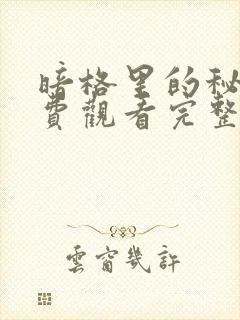 暗格里的秘
費觀看完整
雲窗幾許